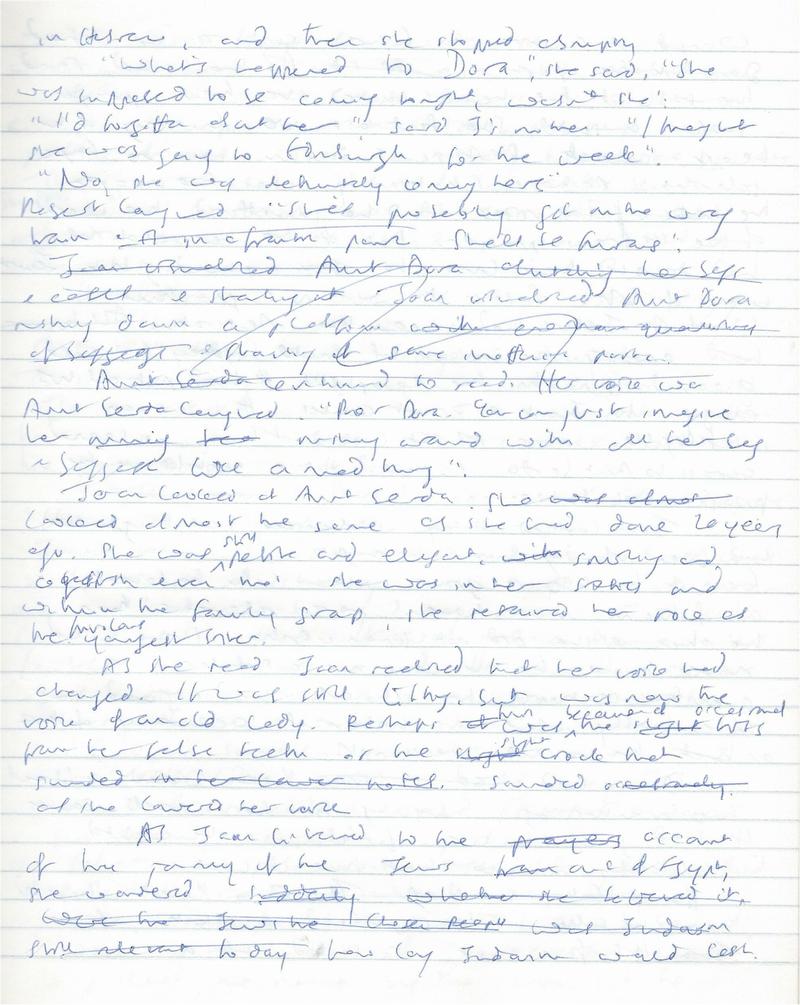 in Hebrew, and then she stopped abruptly
"What's happened to Dora", she said, "She
was supposed to be coming tonight, wasn't she".
"I'd forgotten about her", said J's mother "I thought
she was going to Edinburgh for the week".
"No, she was definitely coming here"
laughed "She's probably got on the wrong
train She'll be furious".
Joan visualised Aunt Dora clutching her bags
Joan visualised Aunt Dora
rushing down a platform
of baggage & shouting at some
Aunt Gerda continued to read. Her voice was
Aunt Gerda laughed. "Poor Dora. You can just imagine
her running her rushing around with all her bag
baggage like a mad thing".
Joan looked at Aunt Gerda. She was almost
looked almost the same as she had done 20 years
ago. She was still petite and elegant, with smiling and
coquettish even now she was in her sixties and
within the family group, she retained her role as
the youngest sister.
As she read Joan realised that her voice had
changed. It was still lilting, but was now the
voice of an old lady. Perhaps it was the occasional
from her false teeth or the slight crack that
sounded in her lower notes. sounded occasionally.
as she lowered her voice
As Joan listened to the prayers account
of the journey of the Jews from out of Egypt,
she wondered suddenly whether she believed it,
Were the Jews the Chosen People was Judaism
still relevant today how long Judaism would last.